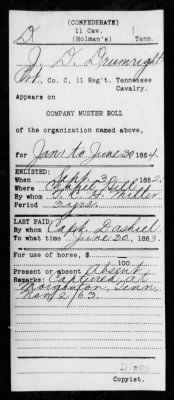 (CONFEDERATE)
D 11 Cav. Tenn.
(Holman's)
J. D. Drumright
Pvt. Co. C, 11 Reg't. Tennessee
Cavalry.
Appears on
COMPANY MUSTER ROLL
of the organization named above,
for Jan 1 to June 30, 1864.
ENLISTED:
When Sept. 30, 1862.
Where Chapel Hill
By whom T. C. H. Miller
Period 3 yrs.
LAST PAID:
By whom Capt. Dashiel
To what time June 30, 1863.
For use of horse, $
100
Present or absent Absent
Remarks: Captured at
Morganton, Tenn.
Nov. 2/63.
Copyist.